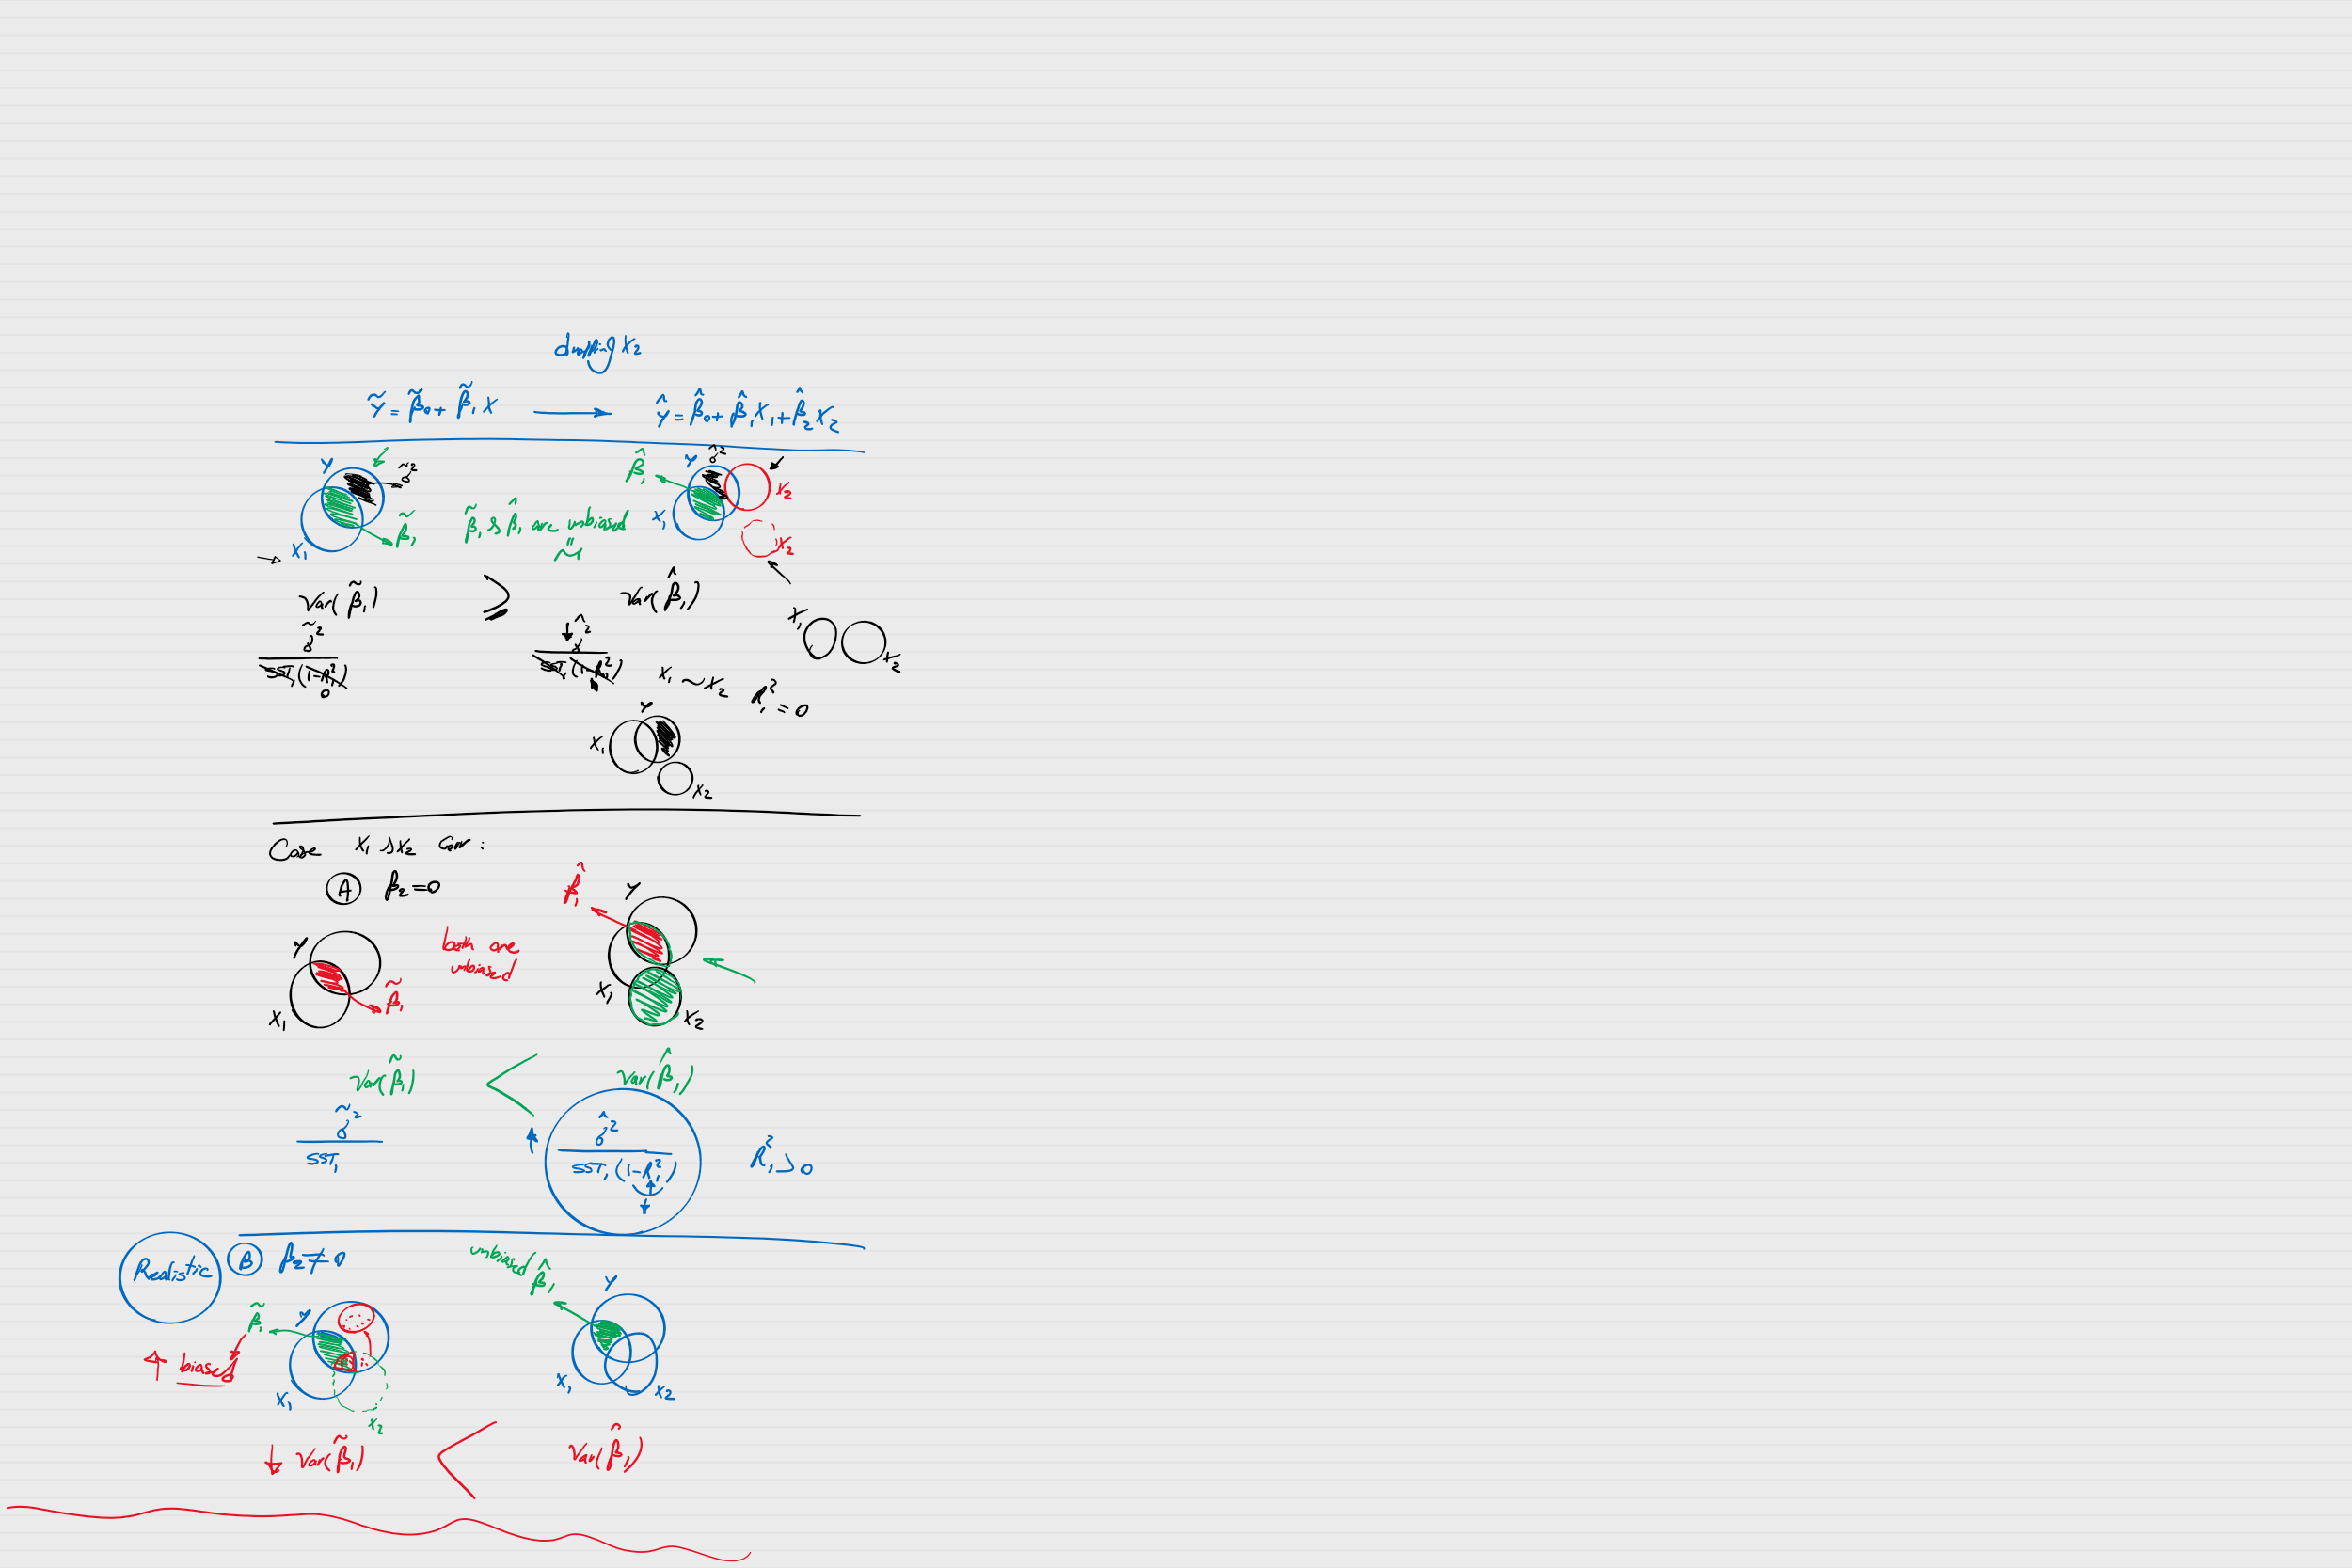 dropping X₂
Ỹ = β̃₀ + β̃₁X → Ŷ = β̂₀ + β̂₁X₁ + β̂₂X₂
Y σ̃² β̂₁ Y σ̂² X₂
X₁ β̃₁ β̃₁ & β̂₁ are unbiased X₁ X₂
Var(β̃₁) ≥ Var(β̂₁)
X₁ X₂
σ̃² / SST₁(1-R₁²) 0 ↓ σ̂² / SST₁(1-R₁²)
X₁ ~ X₂ R₁² = 0
Y
X₁
X₂
Case X₁ & X₂ Corr:
A β₂ = 0 β̂₁ Y
Y both are
unbiased
β̃₁ X₁
X₁ X₂
Var(β̃₁) < Var(β̂₁)
σ̃² / SST₁ ↑ σ̂² / SST₁(1-R₁²) R₁² > 0
Realistic B β₂ ≠ 0 unbiased β̂₁ Y
β̃₁ Y
↑ biased
X₁ X₁ X₂
X₂
↓ Var(β̃₁) < Var(β̂₁)